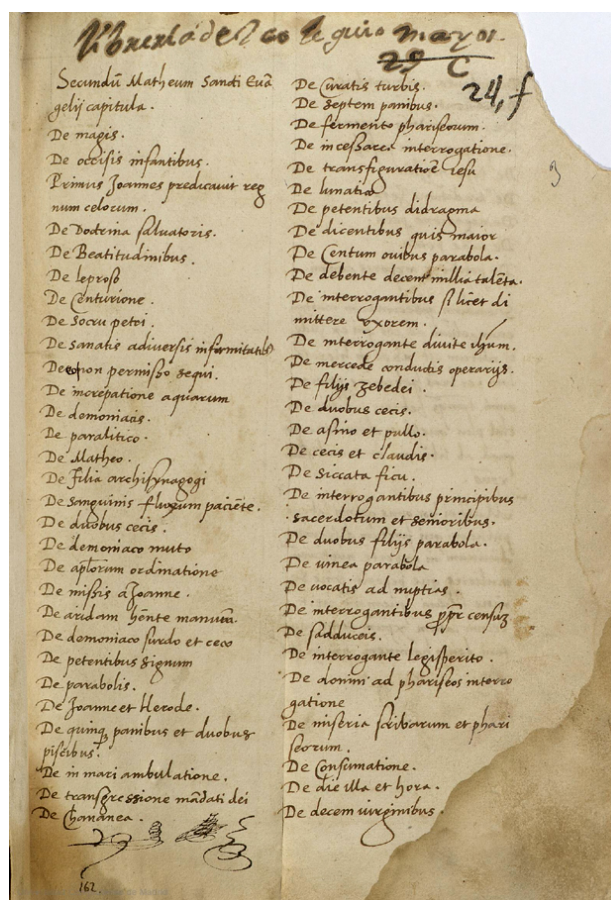 Libreria del Colegio mayor.
29 C
24, f
3
Secundũ Matheum Sancti Euã
gelij capitula.
De magis.
De occisis infantibus.
Primus Joannes predicauit reg
num celorum.
De Doctrina saluatoris.
De Beatitudinibus.
De leproso
De Centurione.
De Socru petri.
De Sanatis a diuersis infirmitatib
De non permisso sequi.
De increpatione aquarum
De demoniacis.
De paralitico.
De Matheo.
De Filia archisynagogi
De Sanguinis fluxum paciẽte.
De duobus cecis.
De demoniaco muto
De aplorum ordinatione
De missis a Joanne.
De aridam hẽnte manum.
De demoniaco surdo et ceco
De petentibus signum
De parabolis.
De Joanne et Herode.
De quinq panibus et duobus
piscibus.
De in mari ambulatione.
De transgressione mãdati dei
De Chananea.
162.
De Curatis turbis.
De Septem panibus.
De fermento phariseorum.
De in cessarea interrogatione.
De transfiguratiõe iesu
De lunatico
De petentibus didragma
De dicentibus quis maior
De Centum ouibus parabola.
De debente decem millia talẽta.
De interrogantibus si licet di
mittere vxorem.
De interrogante diuite ihũm.
De mercede conductis operarijs.
De filijs zebedei.
De duobus cecis.
De asino et pullo.
De cecis et claudis.
De siccata ficu.
De interrogantibus principibus
sacerdotum et senioribus.
De duobus filijs parabola.
De vinea parabola
De vocatis ad nuptias.
De interrogantibus ppr censuz
De sadduceis.
De interrogante legisperito.
De domini ad phariseos interro
gatione
De miseria scribarum et phari
seorum.
De Consumatione.
De die illa et hora.
De decem virginibus.